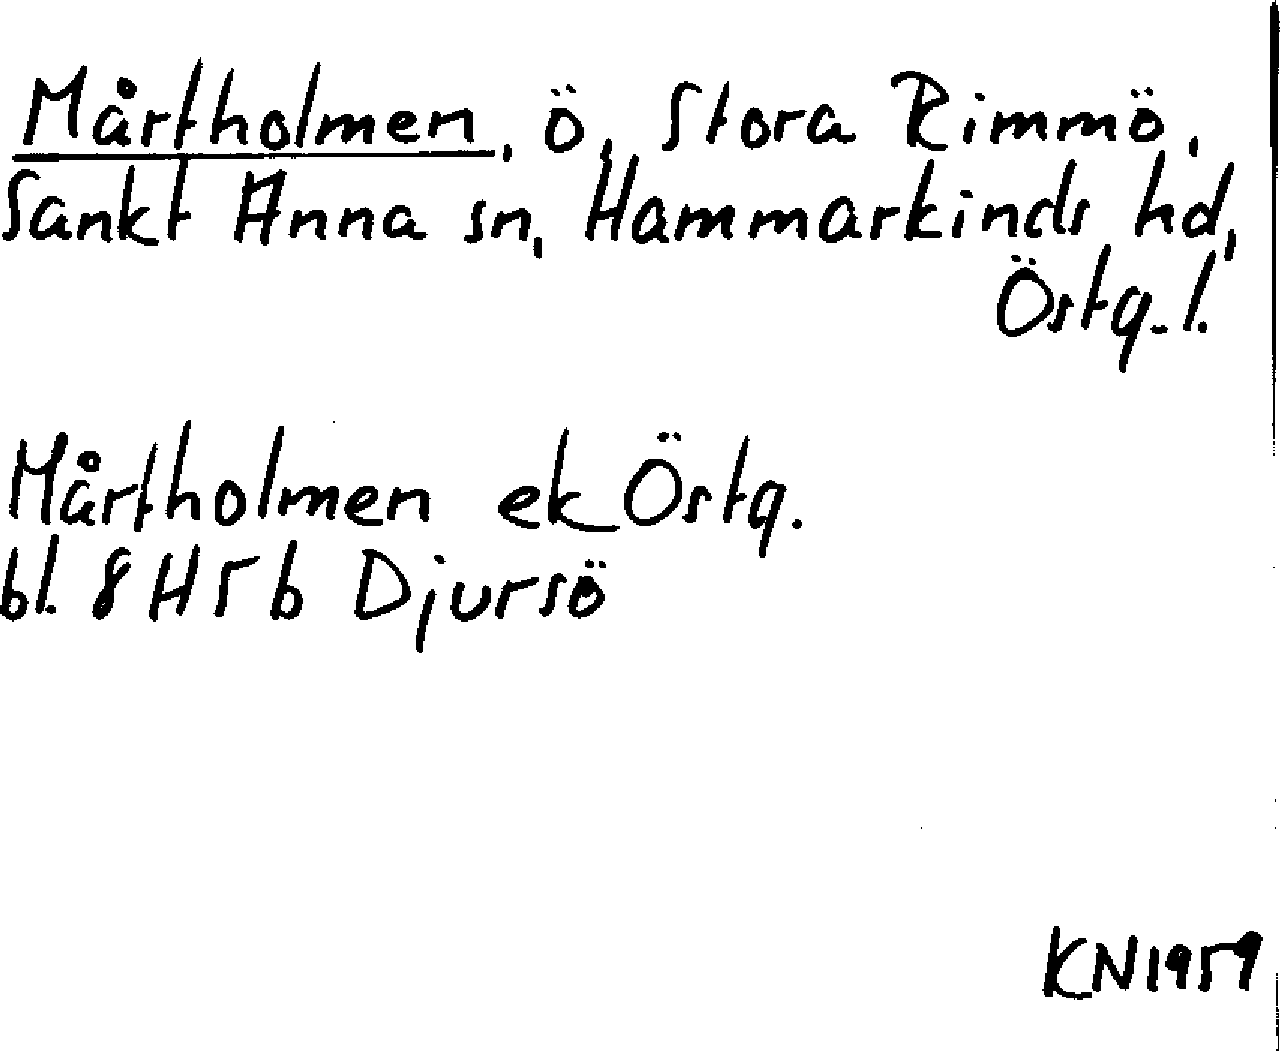 Mårtholmen, ö, Stora Rimmö,
Sankt Anna sn, Hammarkinds hd,
Östg. l.
Mårtholmen ek Östg.
bl. 8H5b Djursö
KN1959